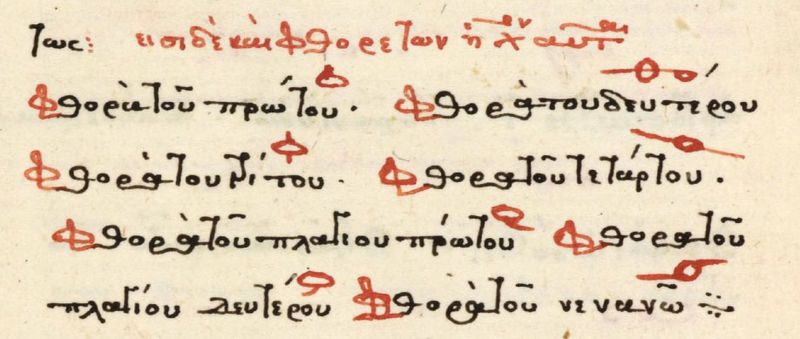 τως: εισὶ δὲ καὶ φθορὲ τῶν ἠχ αυτ
φθορὰ τοῦ πρώτου. φθορὰ του δευτέρου
φθορὰ του τρίτου. φθορα τοῦ τετάρτου.
φθορὰ τοῦ πλαγίου πρώτου φθορα τοῦ
πλαγίου δευτέρου φθορὰ τοῦ νενανῶ